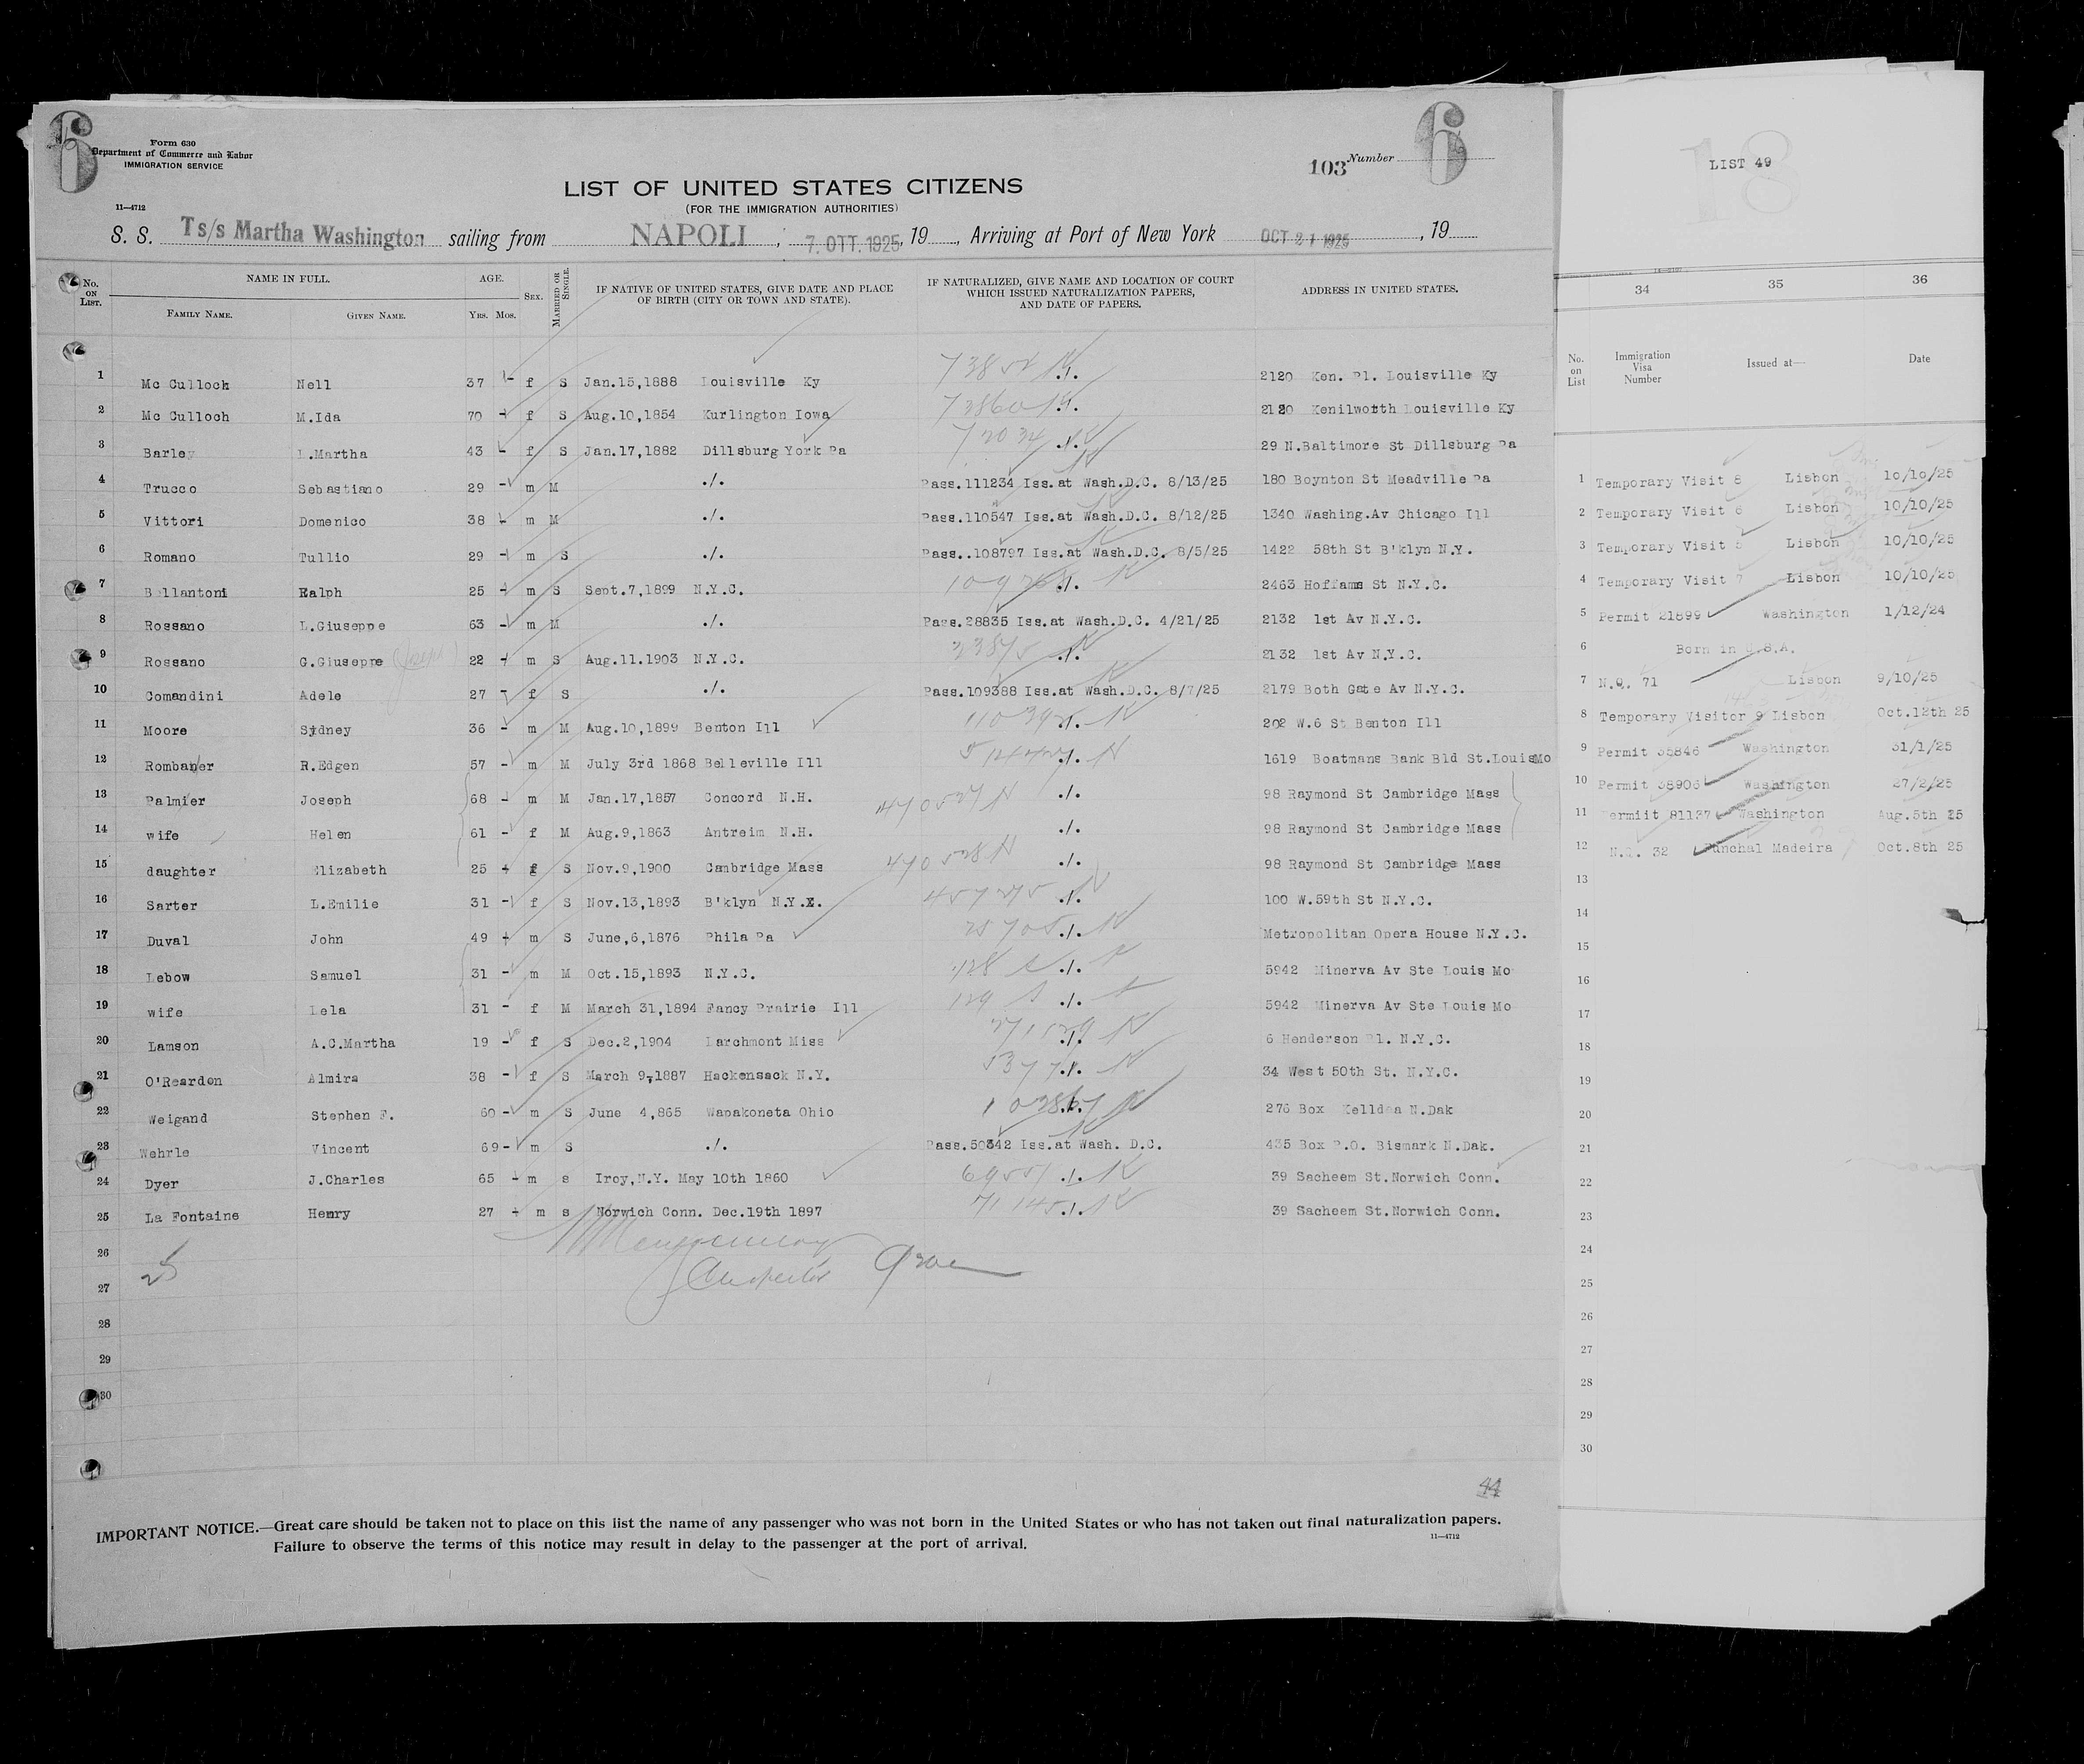 6
Form 630
Department of Commerce and Labor
IMMIGRATION SERVICE
103 Number 6
LIST OF UNITED STATES CITIZENS
(FOR THE IMMIGRATION AUTHORITIES)
11—4712
S. S. Ts/s Martha Washington sailing from NAPOLI, 7. OTT. 1925, 19 , Arriving at Port of New York OCT 21 1925, 19
No. on List. NAME IN FULL. AGE. Sex. Married or Single. IF NATIVE OF UNITED STATES, GIVE DATE AND PLACE OF BIRTH (CITY OR TOWN AND STATE). IF NATURALIZED, GIVE NAME AND LOCATION OF COURT WHICH ISSUED NATURALIZATION PAPERS, AND DATE OF PAPERS. ADDRESS IN UNITED STATES.
Family Name. Given Name. Yrs. Mos.
1 Mc Culloch Nell 37 - f S Jan.15,1888 Louisville Ky ./. 2120 Ken. Pl. Louisville Ky
2 Mc Culloch M.Ida 70 - f S Aug.10,1854 Kurlington Iowa 73860 ./. 2120 Kenilworth Louisville Ky
3 Barley L.Martha 43 - f S Jan.17,1882 Dillsburg York Pa ./. 29 N.Baltimore St Dillsburg Pa
4 Trucco Sebastiano 29 - m M ./. Pass.111234 Iss.at Wash.D.C. 8/13/25 180 Boynton St Meadville Pa
5 Vittori Domenico 38 - m M ./. Pass.110547 Iss.at Wash.D.C. 8/12/25 1340 Washing.Av Chicago Ill
6 Romano Tullio 29 - m S ./. Pass..108797 Iss.at Wash.D.C. 8/5/25 1422 58th St B'klyn N.Y.
7 Bellantoni Ralph 25 - m S Sept.7,1899 N.Y.C. ./. 2463 Hoffams St N.Y.C.
8 Rossano L.Giuseppe 63 - m M ./. Pass.28835 Iss.at Wash.D.C. 4/21/25 2132 1st Av N.Y.C.
9 Rossano G.Giuseppe (Joseph) 22 - m S Aug.11.1903 N.Y.C. ./. 2132 1st Av N.Y.C.
10 Comandini Adele 27 - f S ./. Pass.109388 Iss.at Wash.D.C. 8/7/25 2179 Both Gate Av N.Y.C.
11 Moore Sydney 36 - m M Aug.10,1899 Benton Ill ./. 202 W.6 St Benton Ill
12 Rombaner R.Edgen 57 - m M July 3rd 1868 Belleville Ill ./. 1619 Boatmans Bank Bld St.LouisMo
13 Palmier Joseph 68 - m M Jan.17,1857 Concord N.H. ./. 98 Raymond St Cambridge Mass
14 wife Helen 61 - f M Aug.9,1863 Antreim N.H. ./. 98 Raymond St Cambridge Mass
15 daughter Elizabeth 25 - f S Nov.9,1900 Cambridge Mass ./. 98 Raymond St Cambridge Mass
16 Sarter L.Emilie 31 - f S Nov.13,1893 B'klyn N.Y. ./. 100 W.59th St N.Y.C.
17 Duval John 49 - m S June,6,1876 Phila Pa ./. Metropolitan Opera House N.Y.C.
18 Lebow Samuel 31 - m M Oct.15,1893 N.Y.C. ./. 5942 Minerva Av Ste Louis Mo
19 wife Lela 31 - f M March 31,1894 Fancy Prairie Ill ./. 5942 Minerva Av Ste Louis Mo
20 Lamson A.C.Martha 19 - f S Dec.2,1904 Larchmont Miss ./. 6 Henderson Pl. N.Y.C.
21 O'Reardon Almira 38 - f S March 9,1887 Hackensack N.Y. ./. 34 West 50th St. N.Y.C.
22 Weigand Stephen F. 60 - m S June 4,865 Wapakoneta Ohio ./. 276 Box Kelldea N.Dak
23 Wehrle Vincent 69 - m S ./. Pass.50342 Iss.at Wash. D.C. 435 Box P.O. Bismark N.Dak.
24 Dyer J.Charles 65 - m s Iroy,N.Y. May 10th 1860 ./. 39 Sacheem St.Norwich Conn.
25 La Fontaine Henry 27 - m s Norwich Conn. Dec.19th 1897 ./. 39 Sacheem St.Norwich Conn.
26
25
27
28
29
30
44
IMPORTANT NOTICE.—Great care should be taken not to place on this list the name of any passenger who was not born in the United States or who has not taken out final naturalization papers.
Failure to observe the terms of this notice may result in delay to the passenger at the port of arrival.
11—4712
18
LIST 49
34 35 36
No. on List Immigration Visa Number Issued at— Date
1 Temporary Visit 8 Lisbon 10/10/25
2 Temporary Visit 6 Lisbon 10/10/25
3 Temporary Visit 5 Lisbon 10/10/25
4 Temporary Visit 7 Lisbon 10/10/25
5 Permit 21899 Washington 1/12/24
6 Born in U.S.A.
7 N.Q. 71 Lisbon 9/10/25
8 Temporary Visitor 9 Lisbon Oct.12th 25
9 Permit 35846 Washington 31/1/25
10 Permit 38906 Washington 27/2/25
11 Permiit 81137 Washington Aug.5th 25
12 N.Q. 32 Funchal Madeira Oct.8th 25
13
14
15
16
17
18
19
20
21
22
23
24
25
26
27
28
29
30